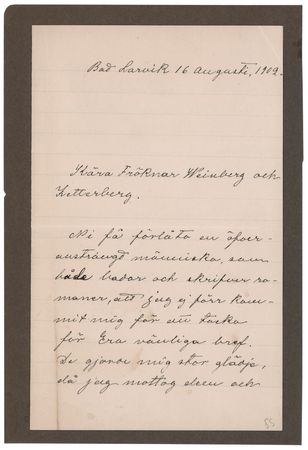 Bad Larvik 16 Augusti, 1902.
Kära Fröknar Weinberg och
Zetterberg.
Ni få förlåta en öfver-
ansträngd människa, som
både badar och skrifver ro-
maner, att jag ej förr kom-
mit mig för att tacka
för Era vänliga bref.
De gjorde mig stor glädje,
då jag mottog dem och
85